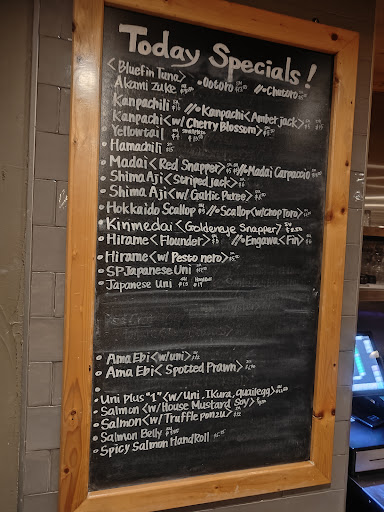 Today Specials!
<Bluefin Tuna>
Akami zuke • Ootoro //• Chutoro
Kanpachili //• Kanpachi <Amber jack>
Kanpachi <w/ Cherry Blossom>
• Yellowtail
• Hamachili
• Madai <Red Snapper> //• Madai Carpaccio
• Shima Aji <Striped Jack>
• Shima Aji <w/ Garlic Puree>
• Hokkaido Scallop //• Scallop <w/chop Toro>
• Kinmedai <Goldeneye Snapper>
• Hirame <Flounder> //• Engawa <Fin>
• Hirame <w/ Pesto nero>
• SP Japanese Uni
• Japanese Uni
• Ama Ebi <w/uni>
• Ama Ebi <Spotted Prawn>
•
• Uni plus "1" <w/ Uni, IKura, quailegg>
• Salmon <w/ House Mustard Soy>
• Salmon <w/ Truffle ponzu>
• Salmon Belly
• Spicy Salmon HandRoll